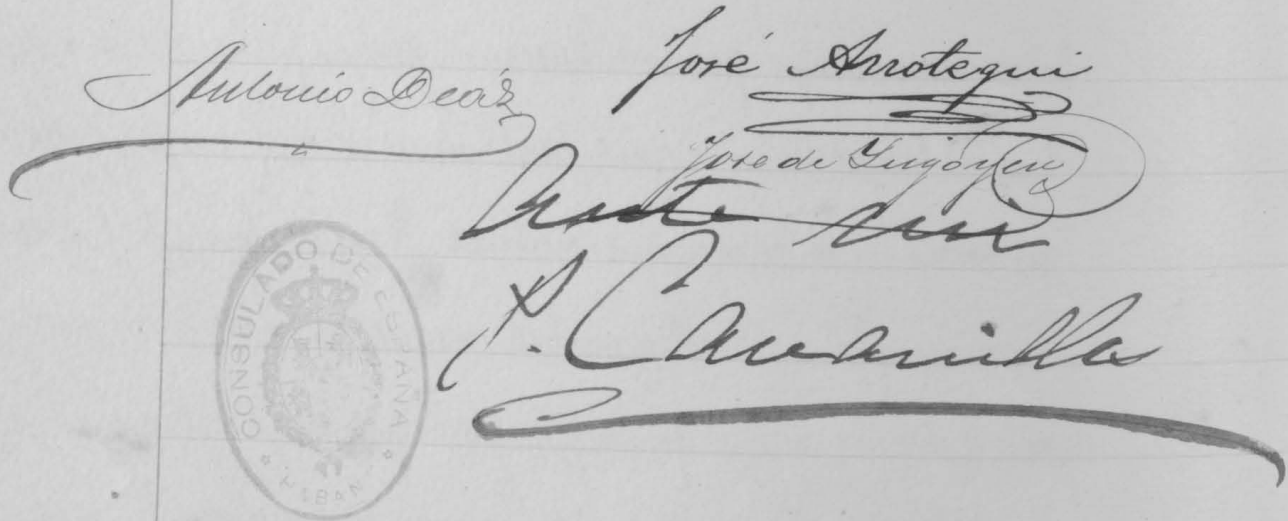 Antonio Deáz
José Arrotegui
José de Yrigoyen
Ante mi
P. Cavanillas
CONSULADO DE ESPAÑA